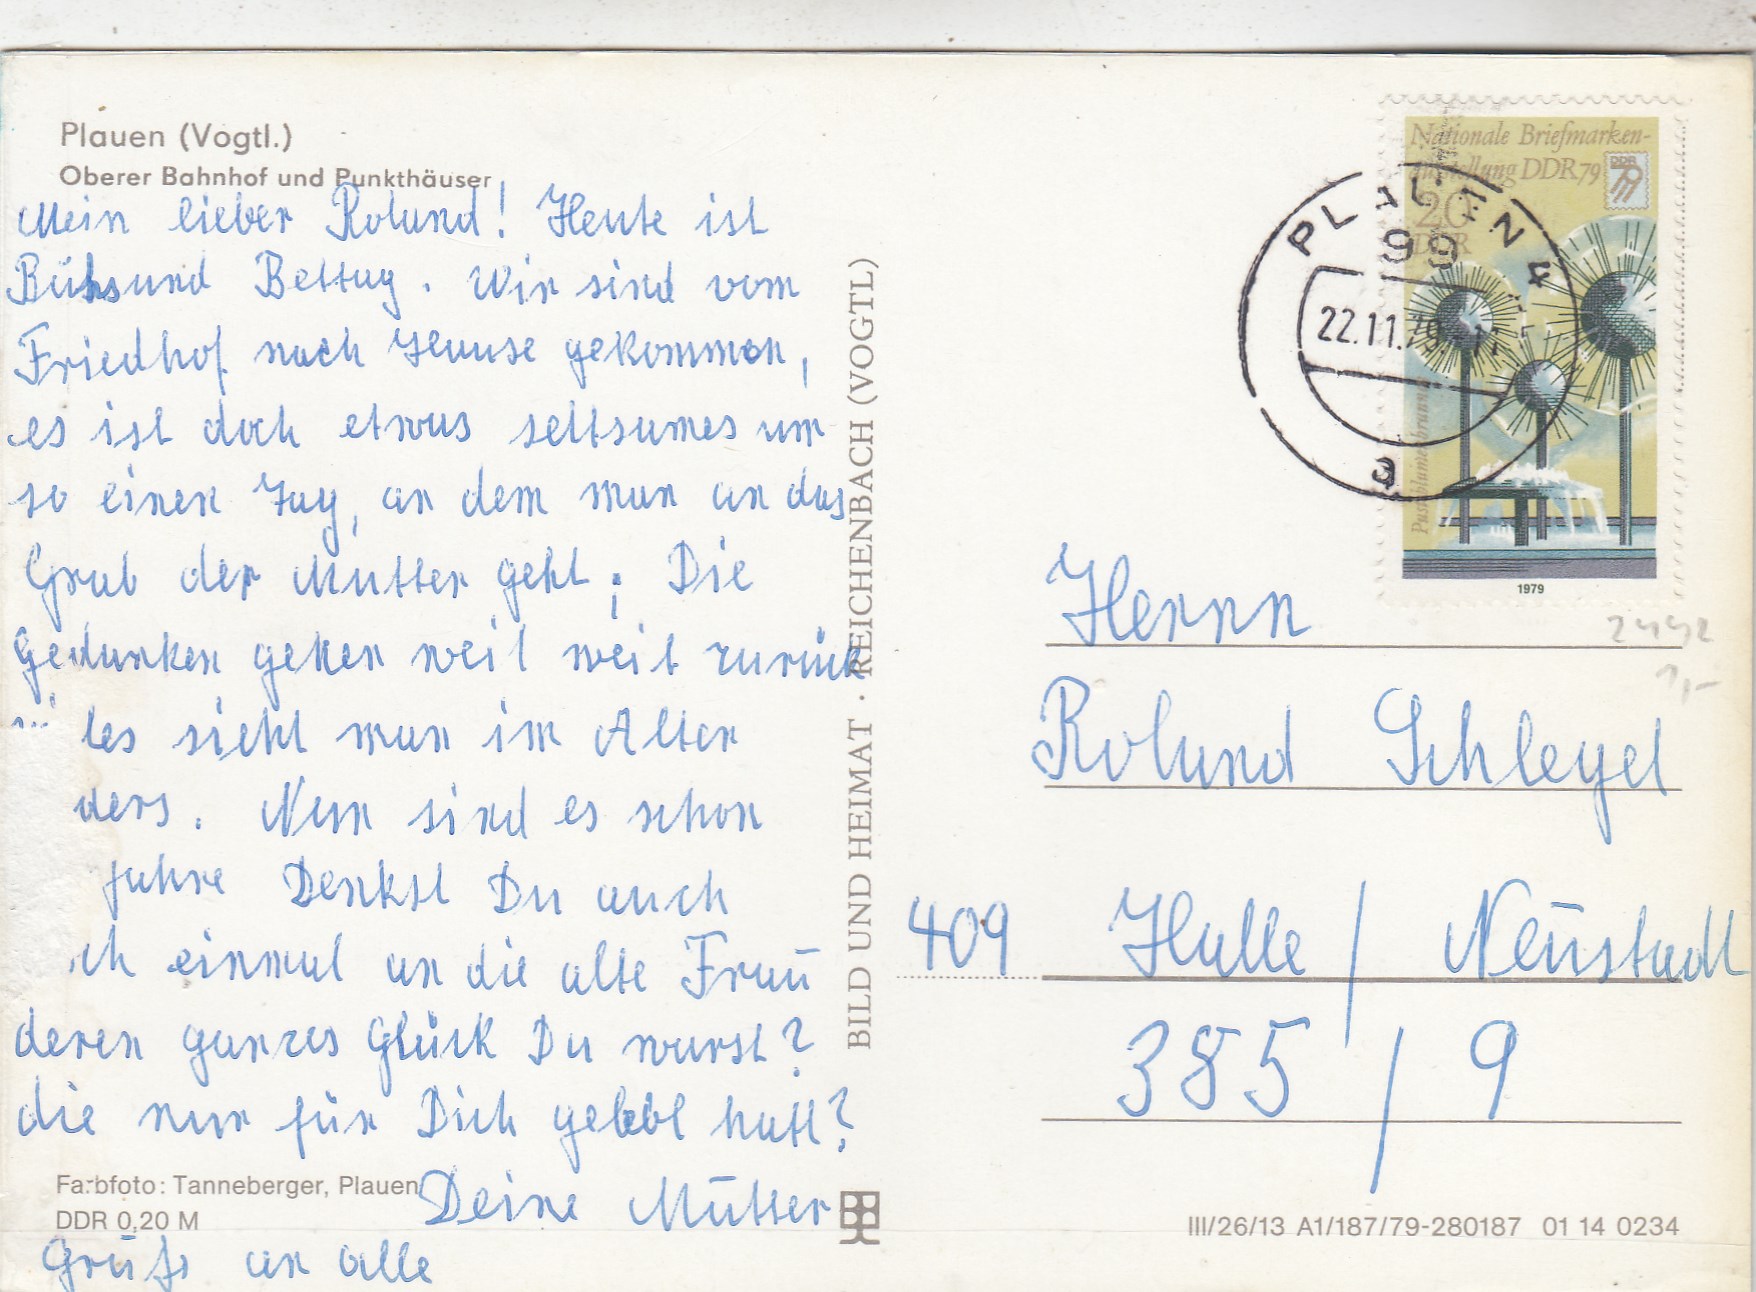 Plauen (Vogtl.)
Oberer Bahnhof und Punkthäuser
Mein lieber Roland! Heute ist
Bußund Bettag. Wir sind vom
Friedhof nach Hause gekommen,
es ist doch etwas seltsames um
so einen Tag, an dem man an das
Grab der Mutter geht; Die
Gedanken gehen weil weit zurück
les sieht man im Alter
ders. Nun sind es schon
Jahre Denkst Du auch
ch einmal an die alte Frau
deren ganzes Glück Du warst?
die nur für Dich gelebt hatt?
Deine Mutter
Gruß an alle
Farbfoto: Tanneberger, Plauen
DDR 0,20 M
BILD UND HEIMAT · REICHENBACH (VOGTL)
Nationale Briefmarken-
ausstellung DDR 79
DDR
79
20
DDR
Pusteblumenbrunnen
1979
PLAUEN 4
99
22.11.79
a
2442
1,-
Herrn
Roland Schlegel
409 Halle / Neustadt
385 / 9
III/26/13 A1/187/79-280187 01 14 0234